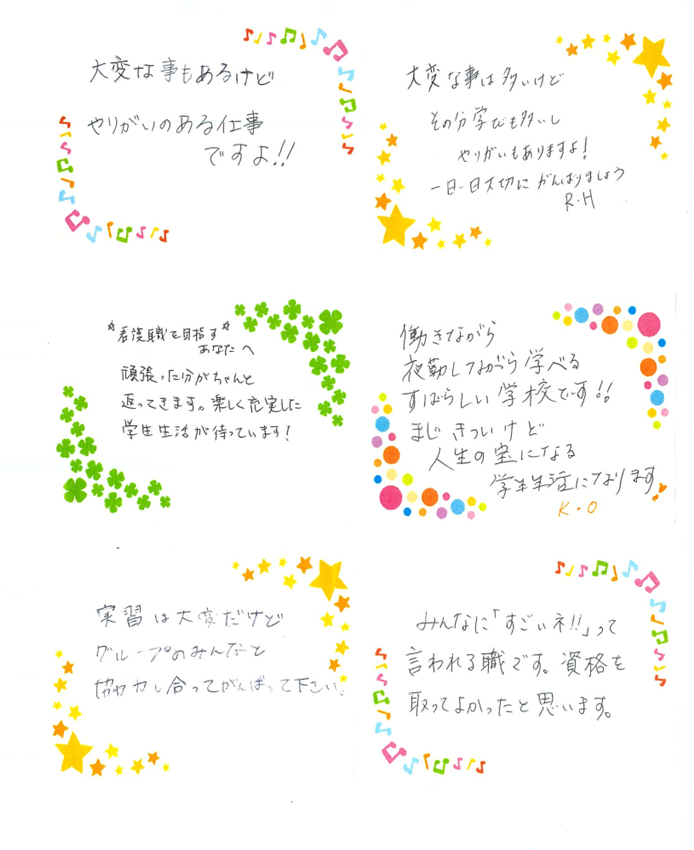 大変な事もあるけど
やりがいのある仕事
ですよ!!
大変な事は多いけど
その分学びも多いし
やりがいもありますよ!
一日一日大切にがんばりましょう
R・H
*看護職を目指す*
あなたへ
頑張った分がちゃんと
返ってきます。楽しく充実した
学生生活が待っています!
働きながら
夜勤しながら学べる
すばらしい学校です!!
まじ きついけど
人生の宝になる
学生生活になります
K・O
実習は大変だけど
グループのみんなと
協力し合ってがんばって下さい。
みんなに「すごいネ!!」って
言われる職です。資格を
取ってよかったと思います。